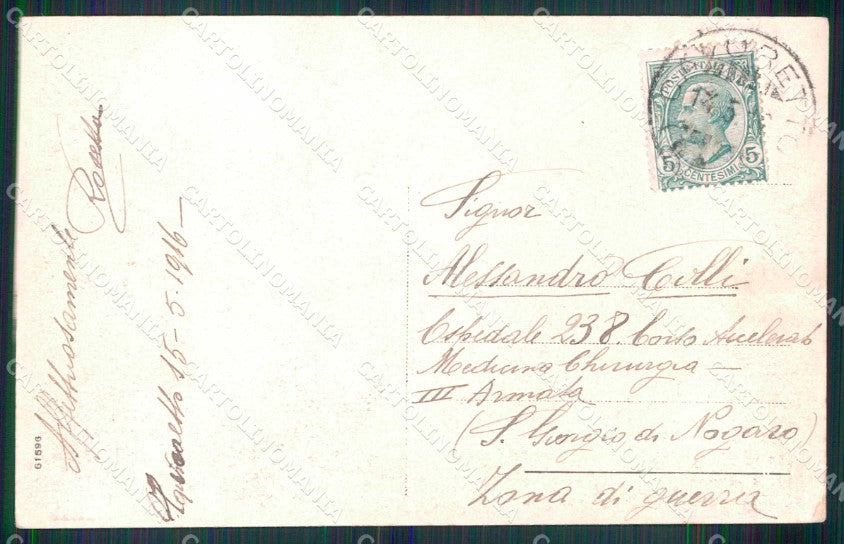 Affettuosamente
Rosetta
15-5-1916-
61596
POSTE ITALIANE
5 CENTESIMI 5
Signor
Alessandro Colli
Ospedale 238. Corso Accelerato
Medicina Chirurgia -
III Armata
(S. Giorgio di Nogaro)
Zona di guerra
CARTOLINOMANIA